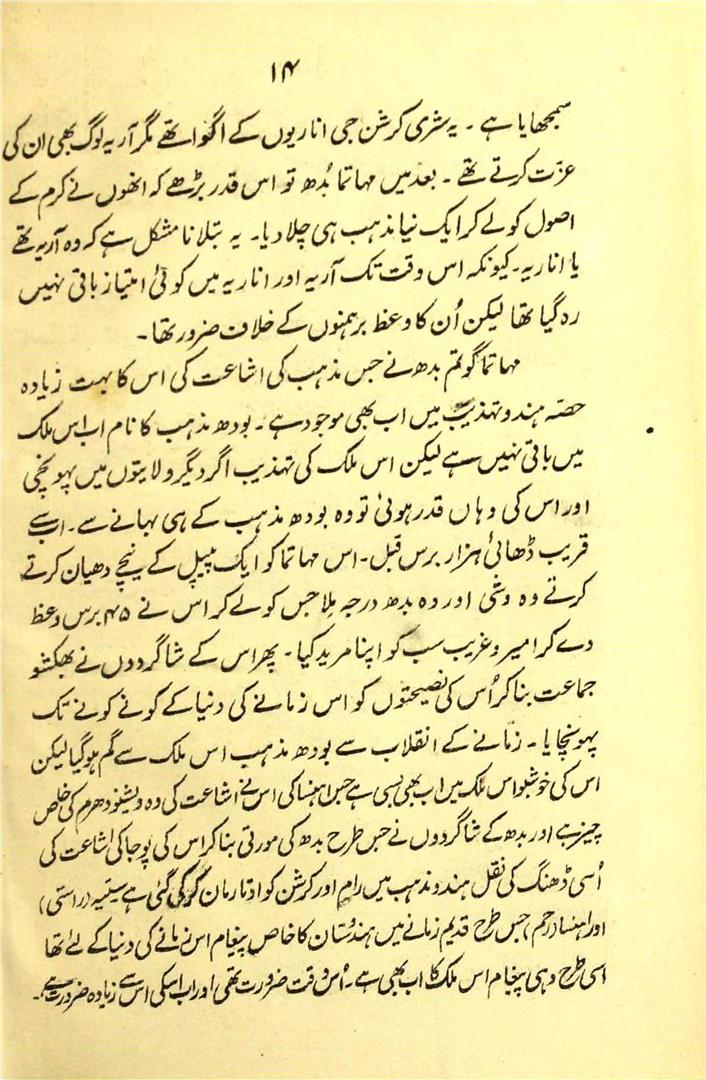 ۱۴
سمجھایا ہے ۔ یہ شری کرشن جی اناریوں کے اگوا تھے مگر آریہ لوگ بھی ان کی
عزت کرتے تھے ۔ بعد میں مہاتما بُدھ تو اس قدر بڑھے کہ انھوں نے کرم کے
اصول کو لے کر ایک نیا مذہب ہی چلا دیا ۔ یہ بتلانا مشکل ہے کہ وہ آریہ تھے
یا اناریہ ۔ کیونکہ اس وقت تک آریہ اور اناریہ میں کوئی امتیاز باقی نہیں
رہ گیا تھا لیکن اُن کا وعظ برہمنوں کے خلاف ضرور تھا ۔
مہاتما گوتم بدھ نے جس مذہب کی اشاعت کی اس کا بہت زیادہ
حصہ ہندو تہذیب میں اب بھی موجود ہے ۔ بودھ مذہب کا نام اب اس ملک
میں باقی نہیں ہے لیکن اس ملک کی تہذیب اگر دیگر ولایتوں میں پہونچی
اور اس کی وہاں قدر ہوئی تو وہ بودھ مذہب کے ہی بہانے سے ۔ اب سے
قریب ڈھائی ہزار برس قبل ۔ اس مہاتما کو ایک پیپل کے نیچے دھیان کرتے
کرتے وہ وشی اور وہ بدھ درجہ مِلا جس کو لے کر اس نے ۴۵ برس وعظ
دے کر امیر و غریب سب کو اپنا مرید کیا ۔ پھر اس کے شاگردوں نے بھکشو
جماعت بنا کر اُس کی نصیحتوں کو اس زمانے کی دنیا کے کونے کونے تک
پہونچایا ۔ زمانے کے انقلاب سے بودھ مذہب اس ملک سے گم ہو گیا لیکن
اس کی خوشبو اس ملک میں اب بھی بسی ہے جس اہنسا کی اس نے اشاعت کی وہ ویشنو دھرم کی خاص
چیز ہے اور بدھ کے شاگردوں نے جس طرح بدھ کی مورتی بنا کر اس کی پوجا کی اشاعت کی
اُسی ڈھنگ کی نقل ہندو مذہب میں رام اور کرشن کو اوتار مان کر کی گئی ہے ستیہ (راستی)
اور اہنسا (رحم) جس طرح قدیم زمانے میں ہندوستان کا خاص پیغام اس زمانے کی دنیا کے لئے تھا
اسی طرح وہی پیغام اس ملک کا اب بھی ہے ۔ اُس وقت ضرورت تھی اور اب اسکی اس سے زیادہ ضرورت ہے ۔